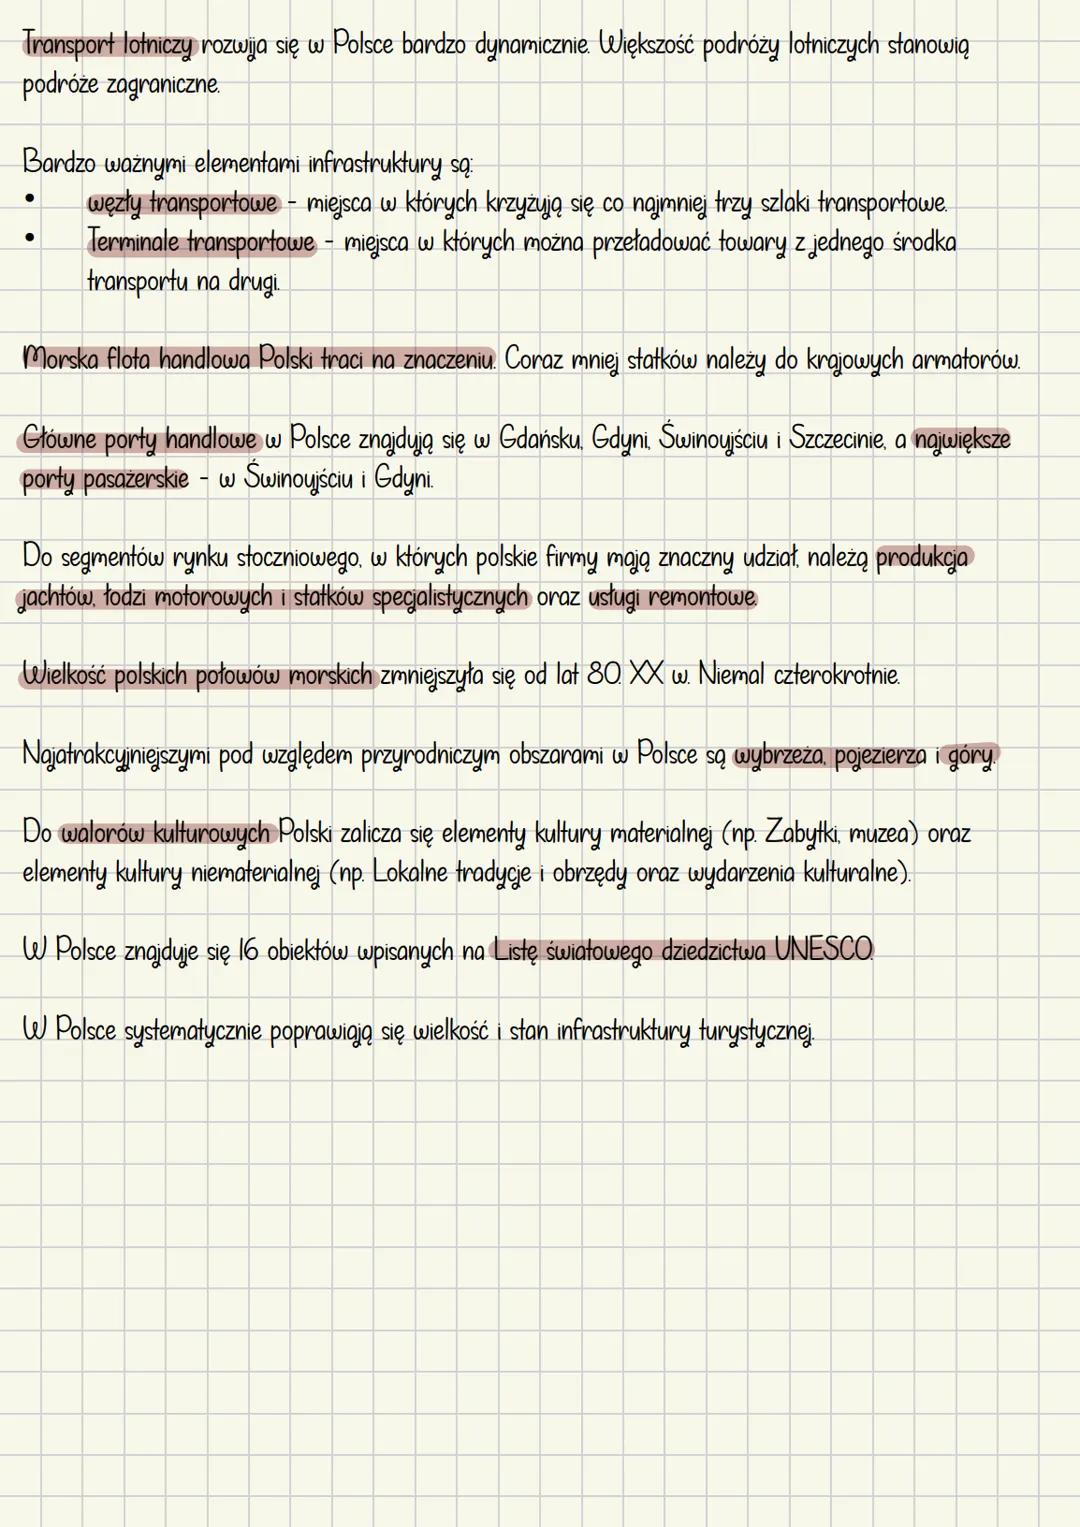 Transport lotniczy rozwija się w Polsce bardzo dynamicznie. Większość podróży lotniczych stanowią
podróże zagraniczne.
Bardzo ważnymi elementami infrastruktury są:
• węzły transportowe - miejsca w których krzyżują się co najmniej trzy szlaki transportowe.
• Terminale transportowe - miejsca w których można przeładować towary z jednego środka
transportu na drugi.
Morska flota handlowa Polski traci na znaczeniu. Coraz mniej statków należy do krajowych armatorów.
Główne porty handlowe w Polsce znajdują się w Gdańsku, Gdyni, Świnoujściu i Szczecinie, a największe
porty pasażerskie - w Świnoujściu i Gdyni.
Do segmentów rynku stoczniowego, w których polskie firmy mają znaczny udział, należą produkcja
jachtów, łodzi motorowych i statków specjalistycznych oraz usługi remontowe.
Wielkość polskich połowów morskich zmniejszyła się od lat 80. XX w. Niemal czterokrotnie.
Najatrakcyjniejszymi pod względem przyrodniczym obszarami w Polsce są wybrzeża, pojezierza i góry.
Do walorów kulturowych Polski zalicza się elementy kultury materialnej (np. Zabytki, muzea) oraz
elementy kultury niematerialnej (np. Lokalne tradycje i obrzędy oraz wydarzenia kulturalne).
W Polsce znajduje się 16 obiektów wpisanych na Listę światowego dziedzictwa UNESCO.
W Polsce systematycznie poprawiają się wielkość i stan infrastruktury turystycznej.